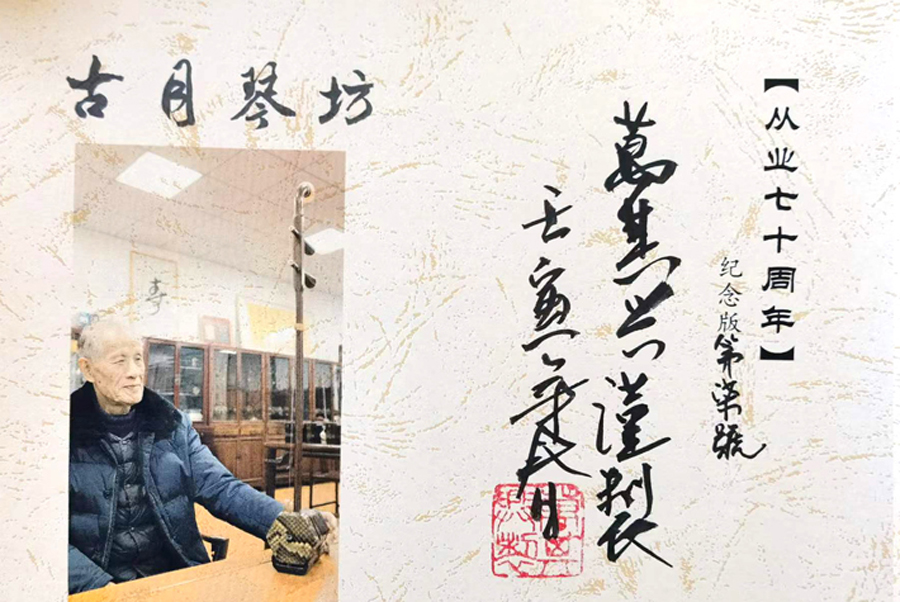 古月琴坊
【从业七十周年】
纪念版第柒號
萬其兴谨製
壬寅年月
寿